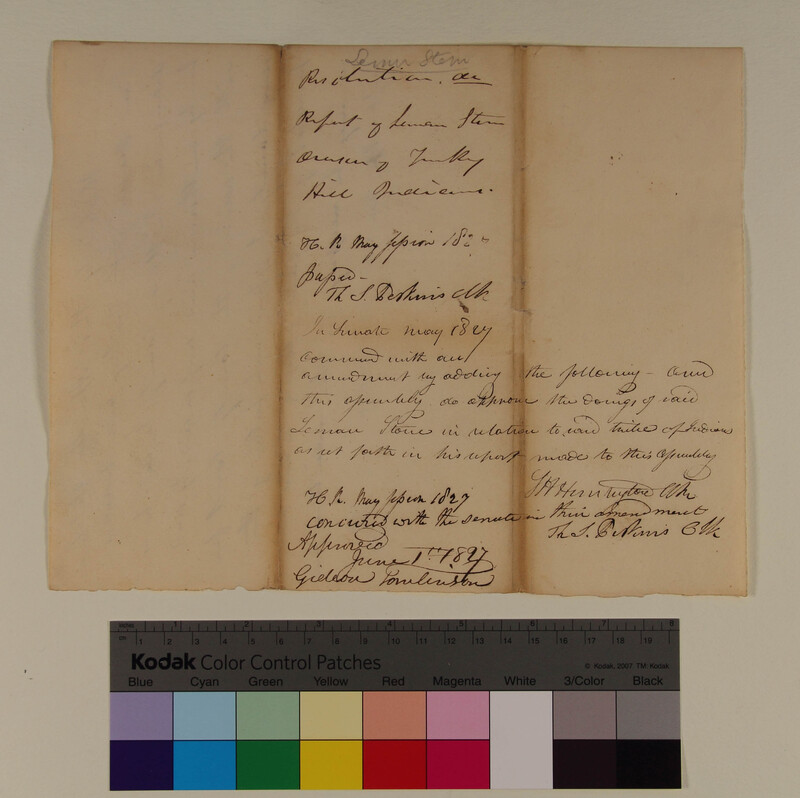 Leman Stone
Resolution. on
Report of Leman Stone
Overseer of Turkey
Hill Indians.
H. R. May Session 1827
passed—
Th. S. Perkins Clk
In Senate May 1827
Concurred with an
amendment by adding the following — and
this assembly do approve the doings of said
Leman Stone in relation to said tribe of Indians
as set forth in his report made to this assembly
Huntington Clk
H. R. May Session 1827
concurred with the senate in their amendment
Th. S. Perkins Clk
Approved
June 1st 1827
Gideon Tomlinson
inches 1 2 3 4 5 6 7 8
cm 1 2 3 4 5 6 7 8 9 10 11 12 13 14 15 16 17 18 19
Kodak Color Control Patches
© Kodak, 2007 TM: Kodak
Blue Cyan Green Yellow Red Magenta White 3/Color Black